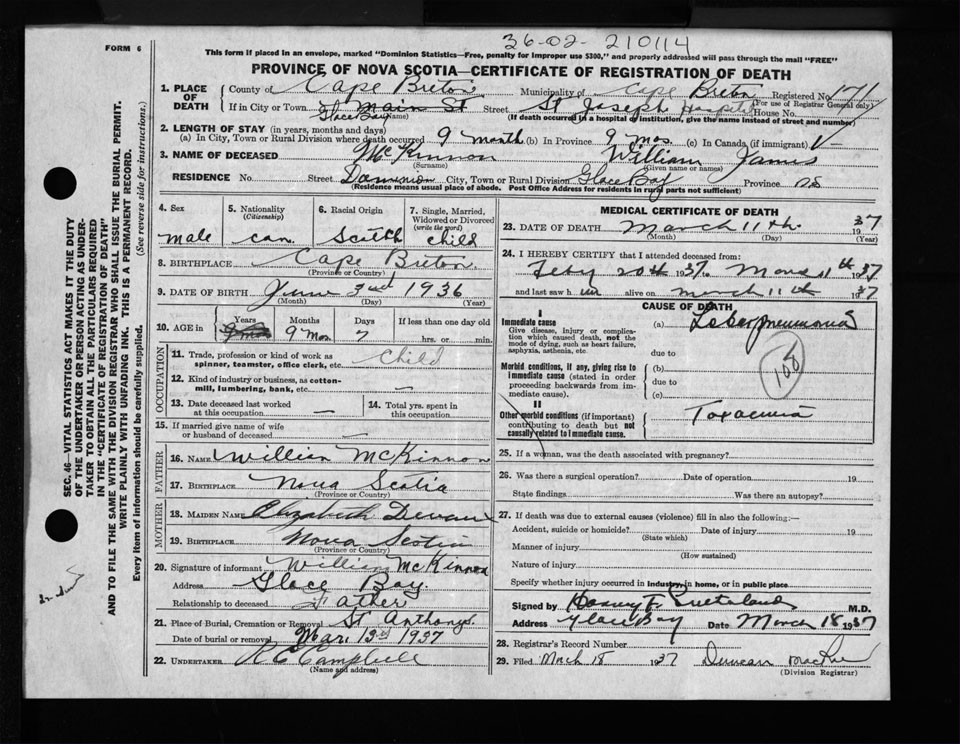 36-02-210114
FORM 6
This form if placed in an envelope, marked "Dominion Statistics—Free, penalty for improper use $300," and properly addressed will pass through the mail "FREE"
PROVINCE OF NOVA SCOTIA—CERTIFICATE OF REGISTRATION OF DEATH
1. PLACE OF DEATH County of Cape Breton Municipality of Cape Breton Registered No. 171
(For use of Registrar General only)
If in City or Town Glace Bay (Name) Main St Street St Joseph Hospital House No.
(If death occurred in a hospital or institution, give the name instead of street and number)
2. LENGTH OF STAY (in years, months and days)
(a) In City, Town or Rural Division where death occurred 9 month (b) In Province 9 mos. (c) In Canada (if immigrant)
3. NAME OF DECEASED McKinnon William James
(Surname) (Given name or names)
RESIDENCE No. Street Dominion City, Town or Rural Division Glace Bay Province NS
(Residence means usual place of abode. Post Office Address for residents in rural parts not sufficient)
4. Sex male
5. Nationality (Citizenship) can.
6. Racial Origin Scotch
7. Single, Married, Widowed or Divorced (write the word) child
8. BIRTHPLACE Cape Breton
(Province or Country)
9. DATE OF BIRTH June 3rd 1936
(Month) (Day) (Year)
10. AGE in Years Months Days If less than one day old
9 mos 9 Mos. 7 hrs. or min.
OCCUPATION
11. Trade, profession or kind of work as spinner, teamster, office clerk, etc. Child
12. Kind of industry or business, as cotton-mill, lumbering, bank, etc. —
13. Date deceased last worked at this occupation —
14. Total yrs. spent in this occupation
15. If married give name of wife or husband of deceased —
FATHER
16. NAME William McKinnon
17. BIRTHPLACE Nova Scotia
(Province or Country)
MOTHER
18. MAIDEN NAME Elizabeth
19. BIRTHPLACE Nova Scotia
(Province or Country)
20. Signature of informant William McKinnon
Address Glace Bay.
Relationship to deceased Father
21. Place of Burial, Cremation or Removal St Anthony's
Date of burial or removal Mar. 13th 1937
22. UNDERTAKER R C Campbell
(Name and address)
MEDICAL CERTIFICATE OF DEATH
23. DATE OF DEATH March 11th. 1937
(Month) (Day) (Year)
24. I HEREBY CERTIFY that I attended deceased from:
Feby 20th 1937 to March 11th 1937
and last saw him alive on March 11th 1937
CAUSE OF DEATH
I
Immediate cause (a) Lobar pneumonia
Give disease, injury or complication which caused death, not the mode of dying, such as heart failure, asphyxia, asthenia, etc.
due to
108
Morbid conditions, if any, giving rise to immediate cause (stated in order proceeding backwards from immediate cause).
(b)
due to
(c)
II
Other morbid conditions (if important) contributing to death but not causally related to immediate cause.
Toxaemia
25. If a woman, was the death associated with pregnancy?
26. Was there a surgical operation? Date of operation 19
State findings Was there an autopsy?
27. If death was due to external causes (violence) fill in also the following:—
Accident, suicide or homicide? Date of injury 19
(State which)
Manner of injury
(How sustained)
Nature of injury
Specify whether injury occurred in industry, in home, or in public place
Signed by Harvey F Sutherland M.D.
Address Glace Bay Date March 18 1937
28. Registrar's Record Number
29. Filed March 18 1937 Duncan
(Division Registrar)
SEC. 46—VITAL STATISTICS ACT MAKES IT THE DUTY
OF THE UNDERTAKER OR PERSON ACTING AS UNDER-
TAKER TO OBTAIN ALL THE PARTICULARS REQUIRED
IN THE "CERTIFICATE OF REGISTRATION OF DEATH"
AND TO FILE THE SAME WITH THE DIVISION REGISTRAR WHO SHALL ISSUE THE BURIAL PERMIT.
WRITE PLAINLY WITH UNFADING INK. THIS IS A PERMANENT RECORD.
Every item of information should be carefully supplied. (See reverse side for instructions.)